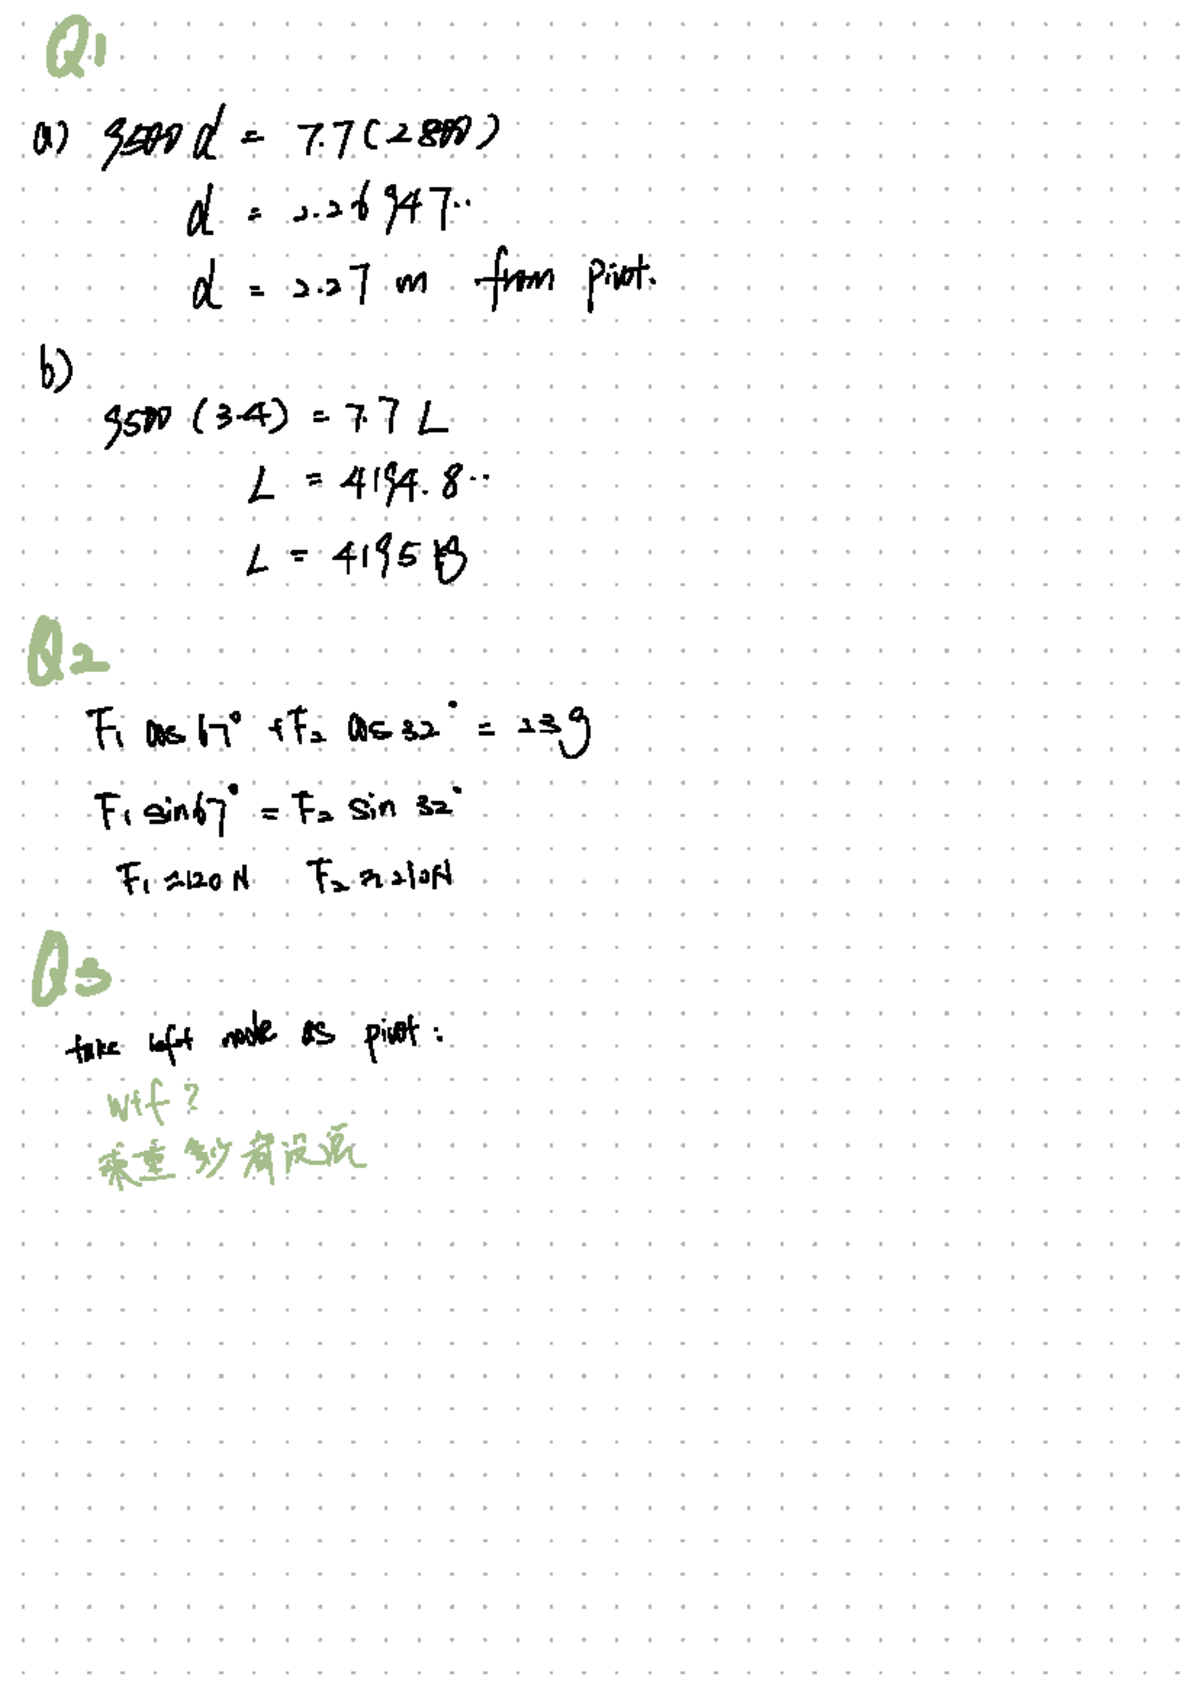 Q1
a) 9500 d = 7.7 (2800)
d = 2.26947..
d = 2.27 m from pivot.
b)
9500 (3.4) = 7.7 L
L = 4194.8..
L = 4195 kg
Q2
F₁ cos 67° + F₂ cos 32° = 23g
F₁ sin 67° = F₂ sin 32°
F₁ ≈ 120 N F₂ ≈ 210N
Q3
take left node as pivot:
wtf?